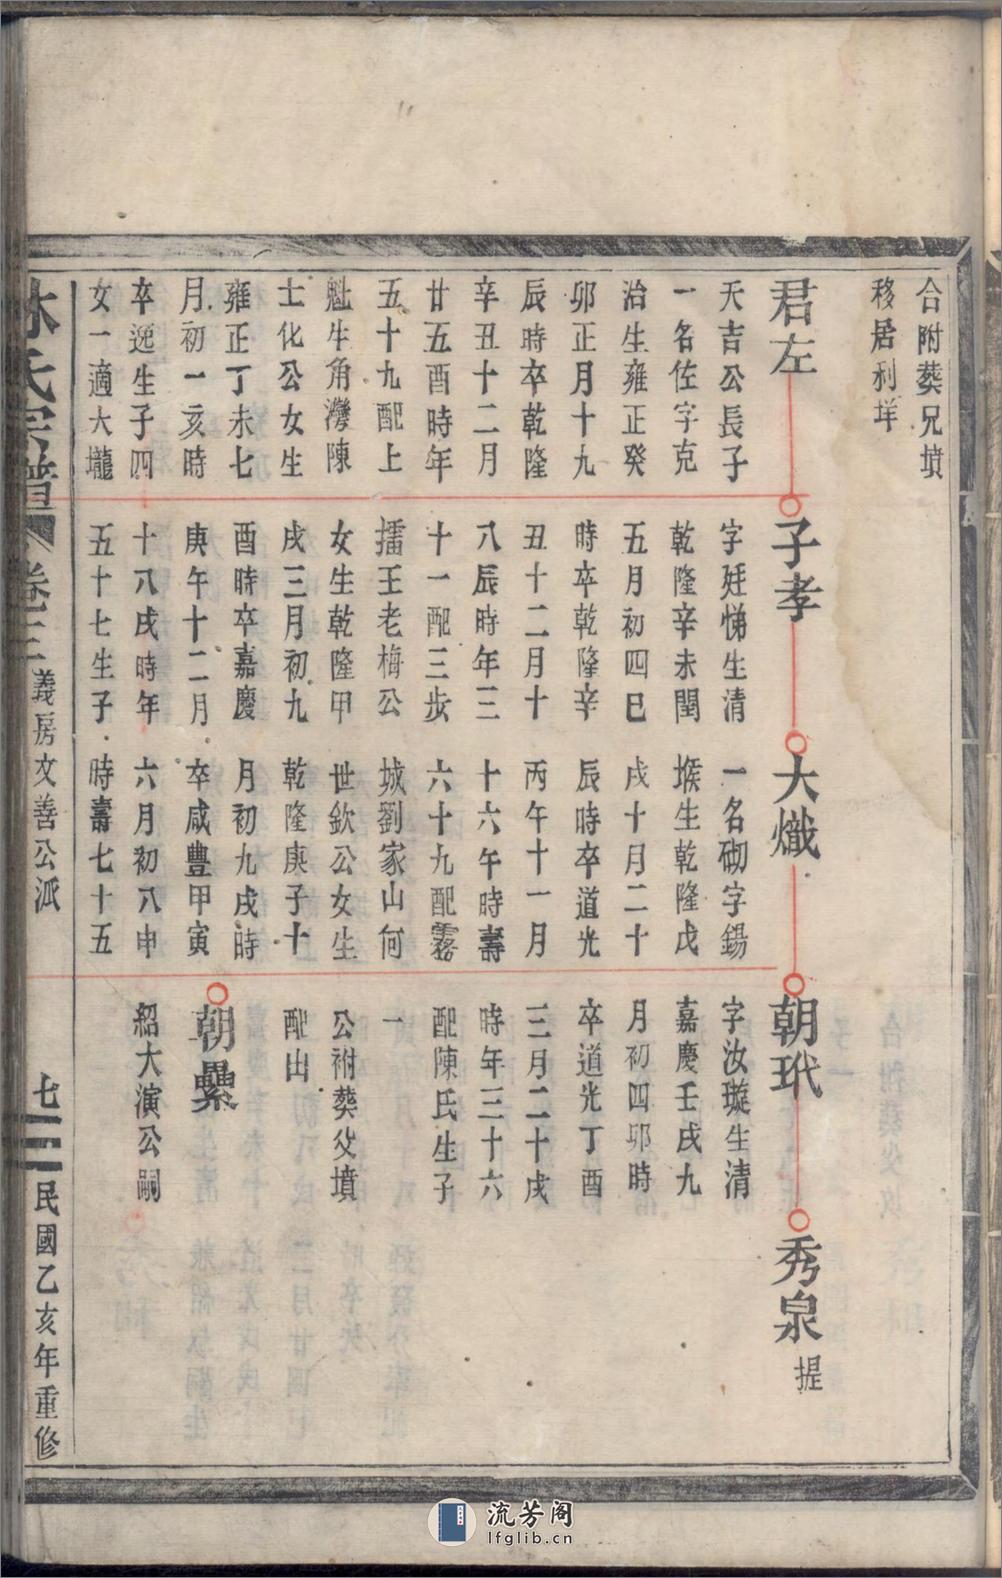 合附葬兄墳
移居利垟
君左
天吉公長子
一名佐字克
治生雍正癸
卯正月十九
辰時卒乾隆
辛丑十二月
廿五酉時年
五十九配上
魁牛角灣陳
士化公女生
雍正丁未七
月初一亥時
卒逸生子四
女一適大壠
子孝
字姃悌生清
乾隆辛未閏
五月初四巳
時卒乾隆辛
丑十二月十
八辰時年三
十一配三步
擂王老梅公
女生乾隆甲
戌三月初九
酉時卒嘉慶
庚午十二月
十八戌時年
五十七生子
大熾
一名砌字錫
堠生乾隆戊
戌十月二十
辰時卒道光
丙午十一月
十六午時壽
六十九配霧
城劉家山何
世欽公女生
乾隆庚子十
月初九戌時
卒咸豐甲寅
六月初八申
時壽七十五
朝玳
字汝璇生清
嘉慶壬戌九
月初四卯時
卒道光丁酉
三月二十戌
時年三十六
配陳氏生子
一
公祔葵父墳
配出
朝纍
紹大演公嗣
秀泉
提
林氏宗譜
卷三
義房文善公派
七
民國乙亥年重修
流芳阁
lfglib.cn